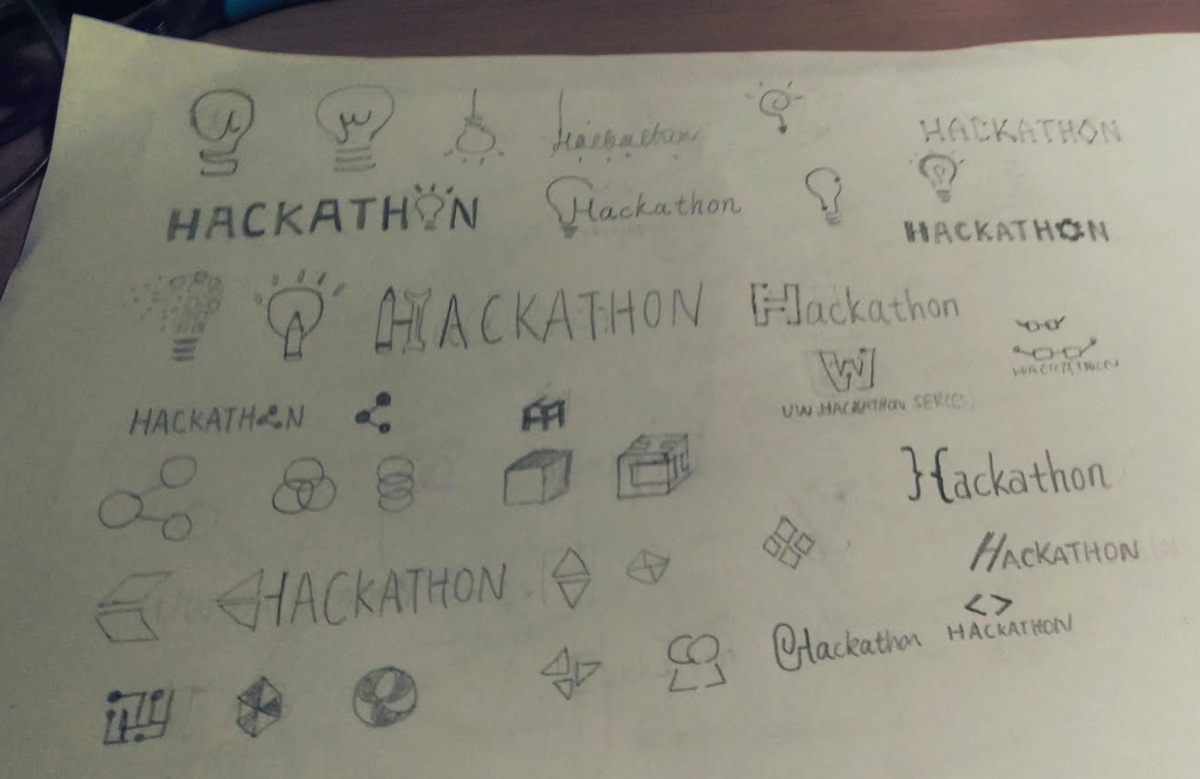 Hackathon
HACKATHON
HACKATHON
Hackathon
HACKATHON
HACKATHON
Hackathon
W
HACKATHON
UW HACKATHON SERIES
HACKATHON
}{ackathon
HACKATHON
HACKATHON
<>
@Hackathon
HACKATHON